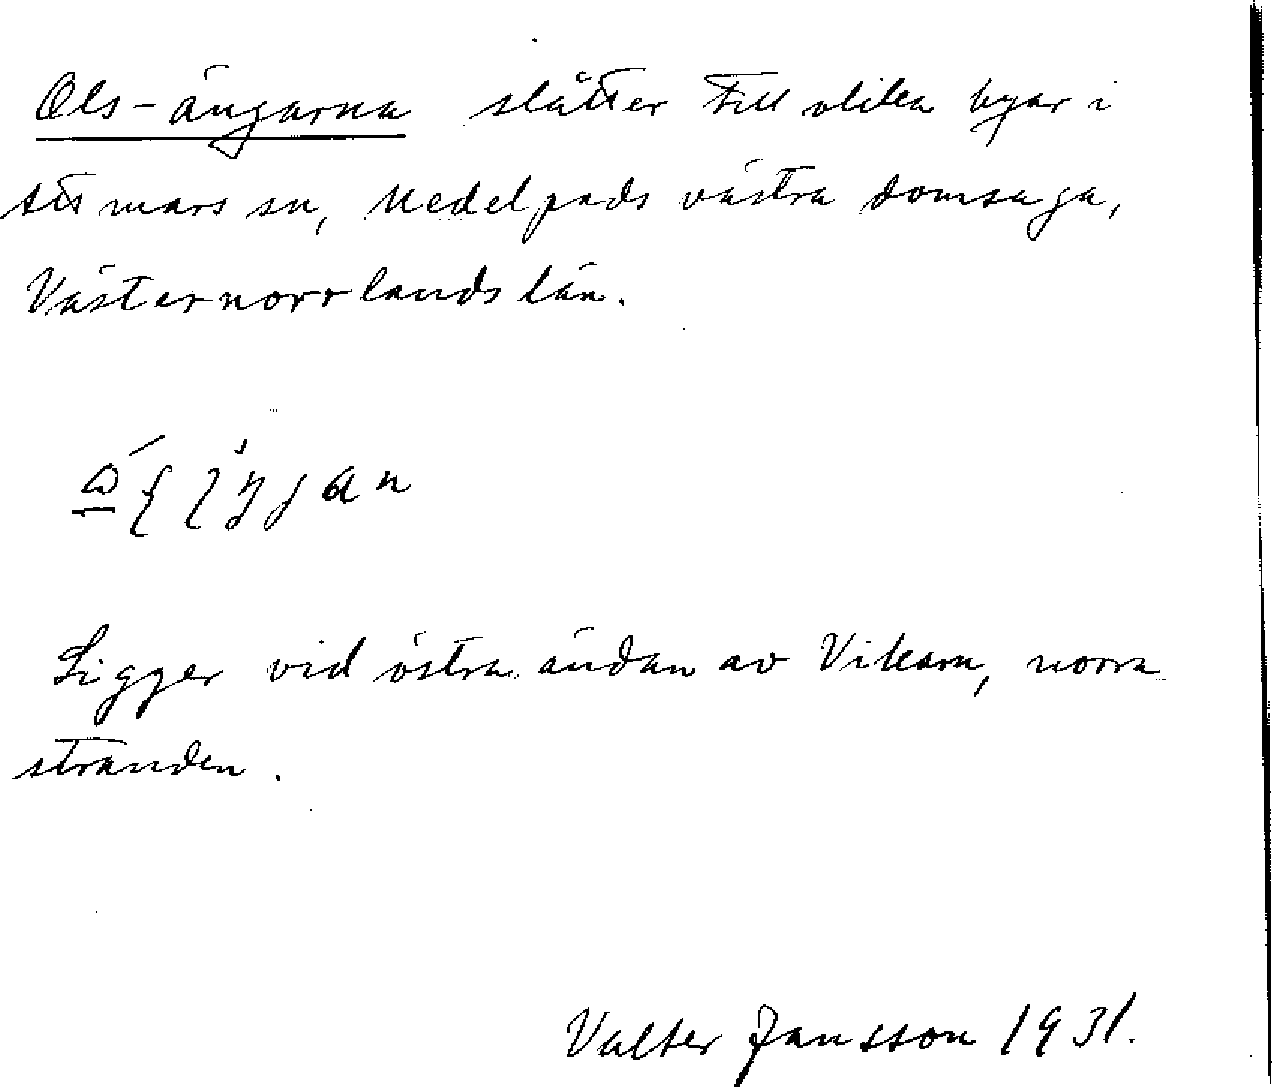 Ols-ängarna slåtter till olika byar i
Attmars sn, Medelpads västra domsaga,
Västernorrlands län.
Ligger vid östra ändan av Vikarn, norra
stranden.
Valter Jansson 1931.